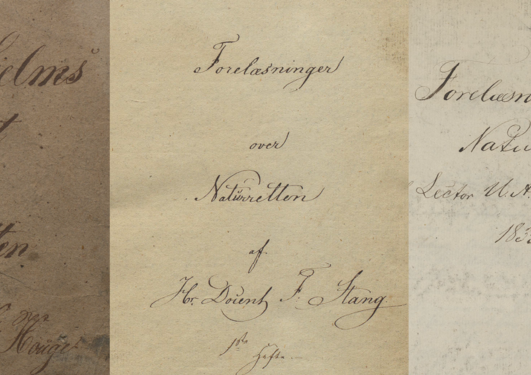 elms's
Forelæsninger
over
Naturretten
af
Hr. Docent F. Stang
1ste Hefte
Forelæsn
Natu
Lector